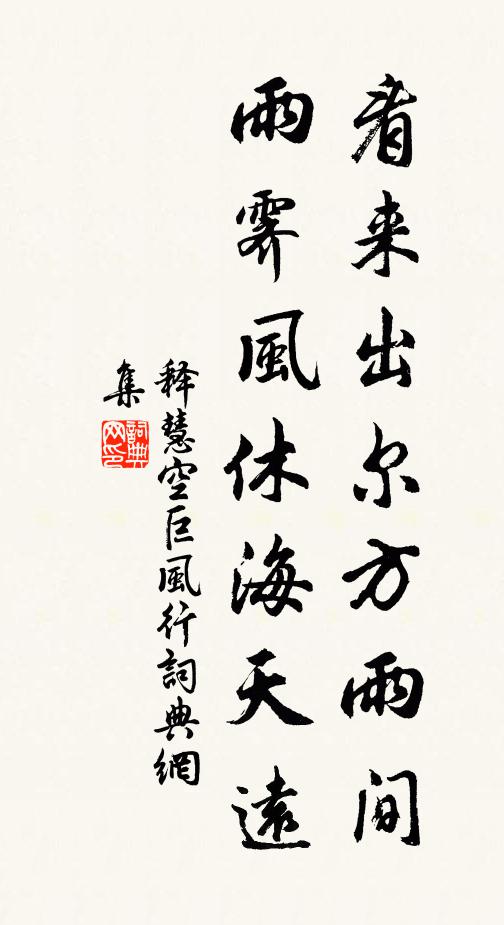 看来出尔方雨间
雨霁風休海天遠
释慧空巨風行詞典網
集
詞典
网印